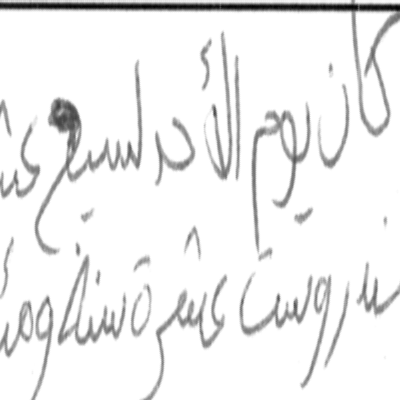 كان يوم الأحد لسبع عشر
وست عشرة سنة ومئ